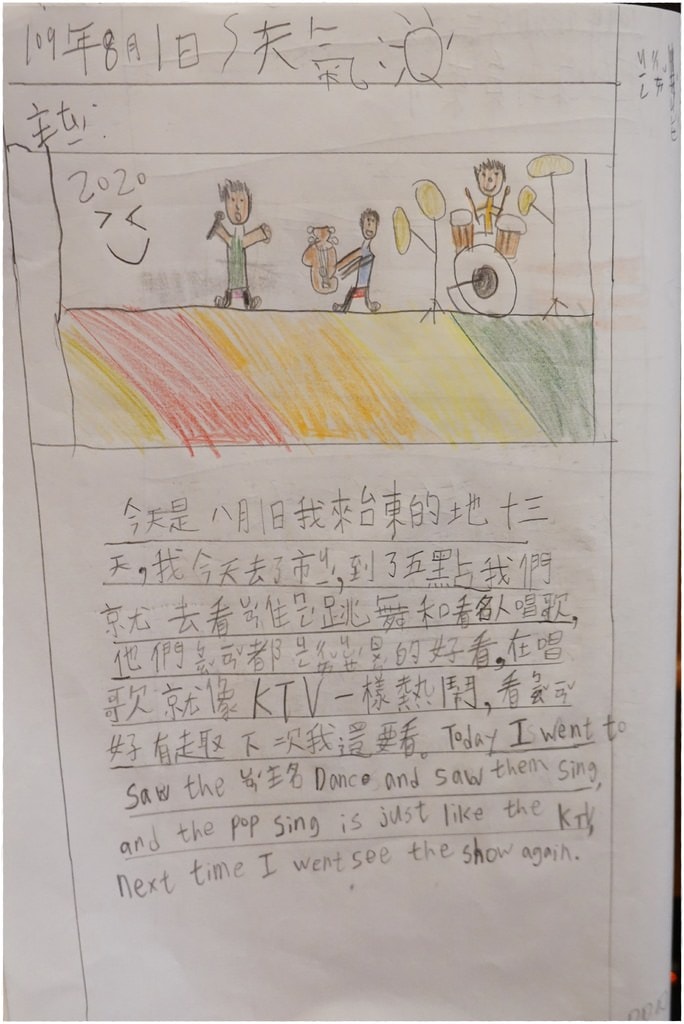 109年8月1日 天氣
主
2020
今天是八月1日我來台東的地十三
天,我今天去了市,到了五點我們
就去看跳舞和看名人唱歌,
他們都的好看,在唱
歌就像KTV一樣熱鬧,看
好有走取下次我還要看。Today I went to
saw the 名 Dance and saw them sing,
and the pop sing is just like the KTV,
next time I went see the show again.